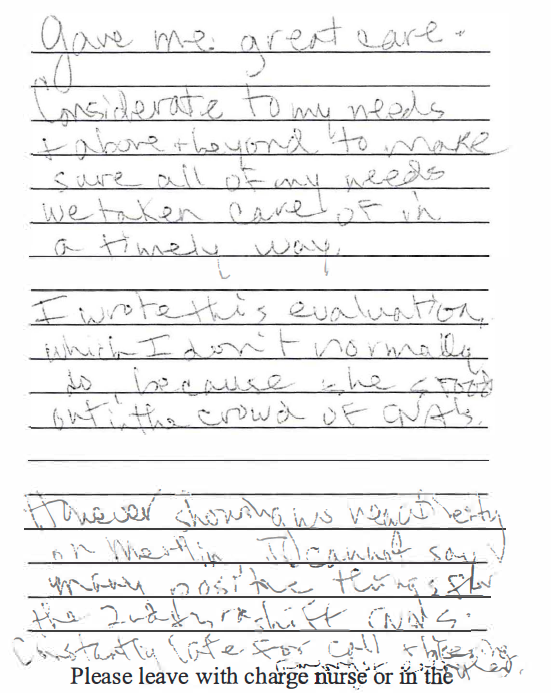 Gave me great care.
Considerate to my needs
+ above + beyond to make
sure all of my needs
we taken care of in
a timely way.
I wrote this evaluation,
which I don't normally
do, because she stood
out in the crowd of CNA's.
However showing no
on I cannot say
many positive things for
the shift CNAs.
Constantly late for call
Please leave with charge nurse or in the